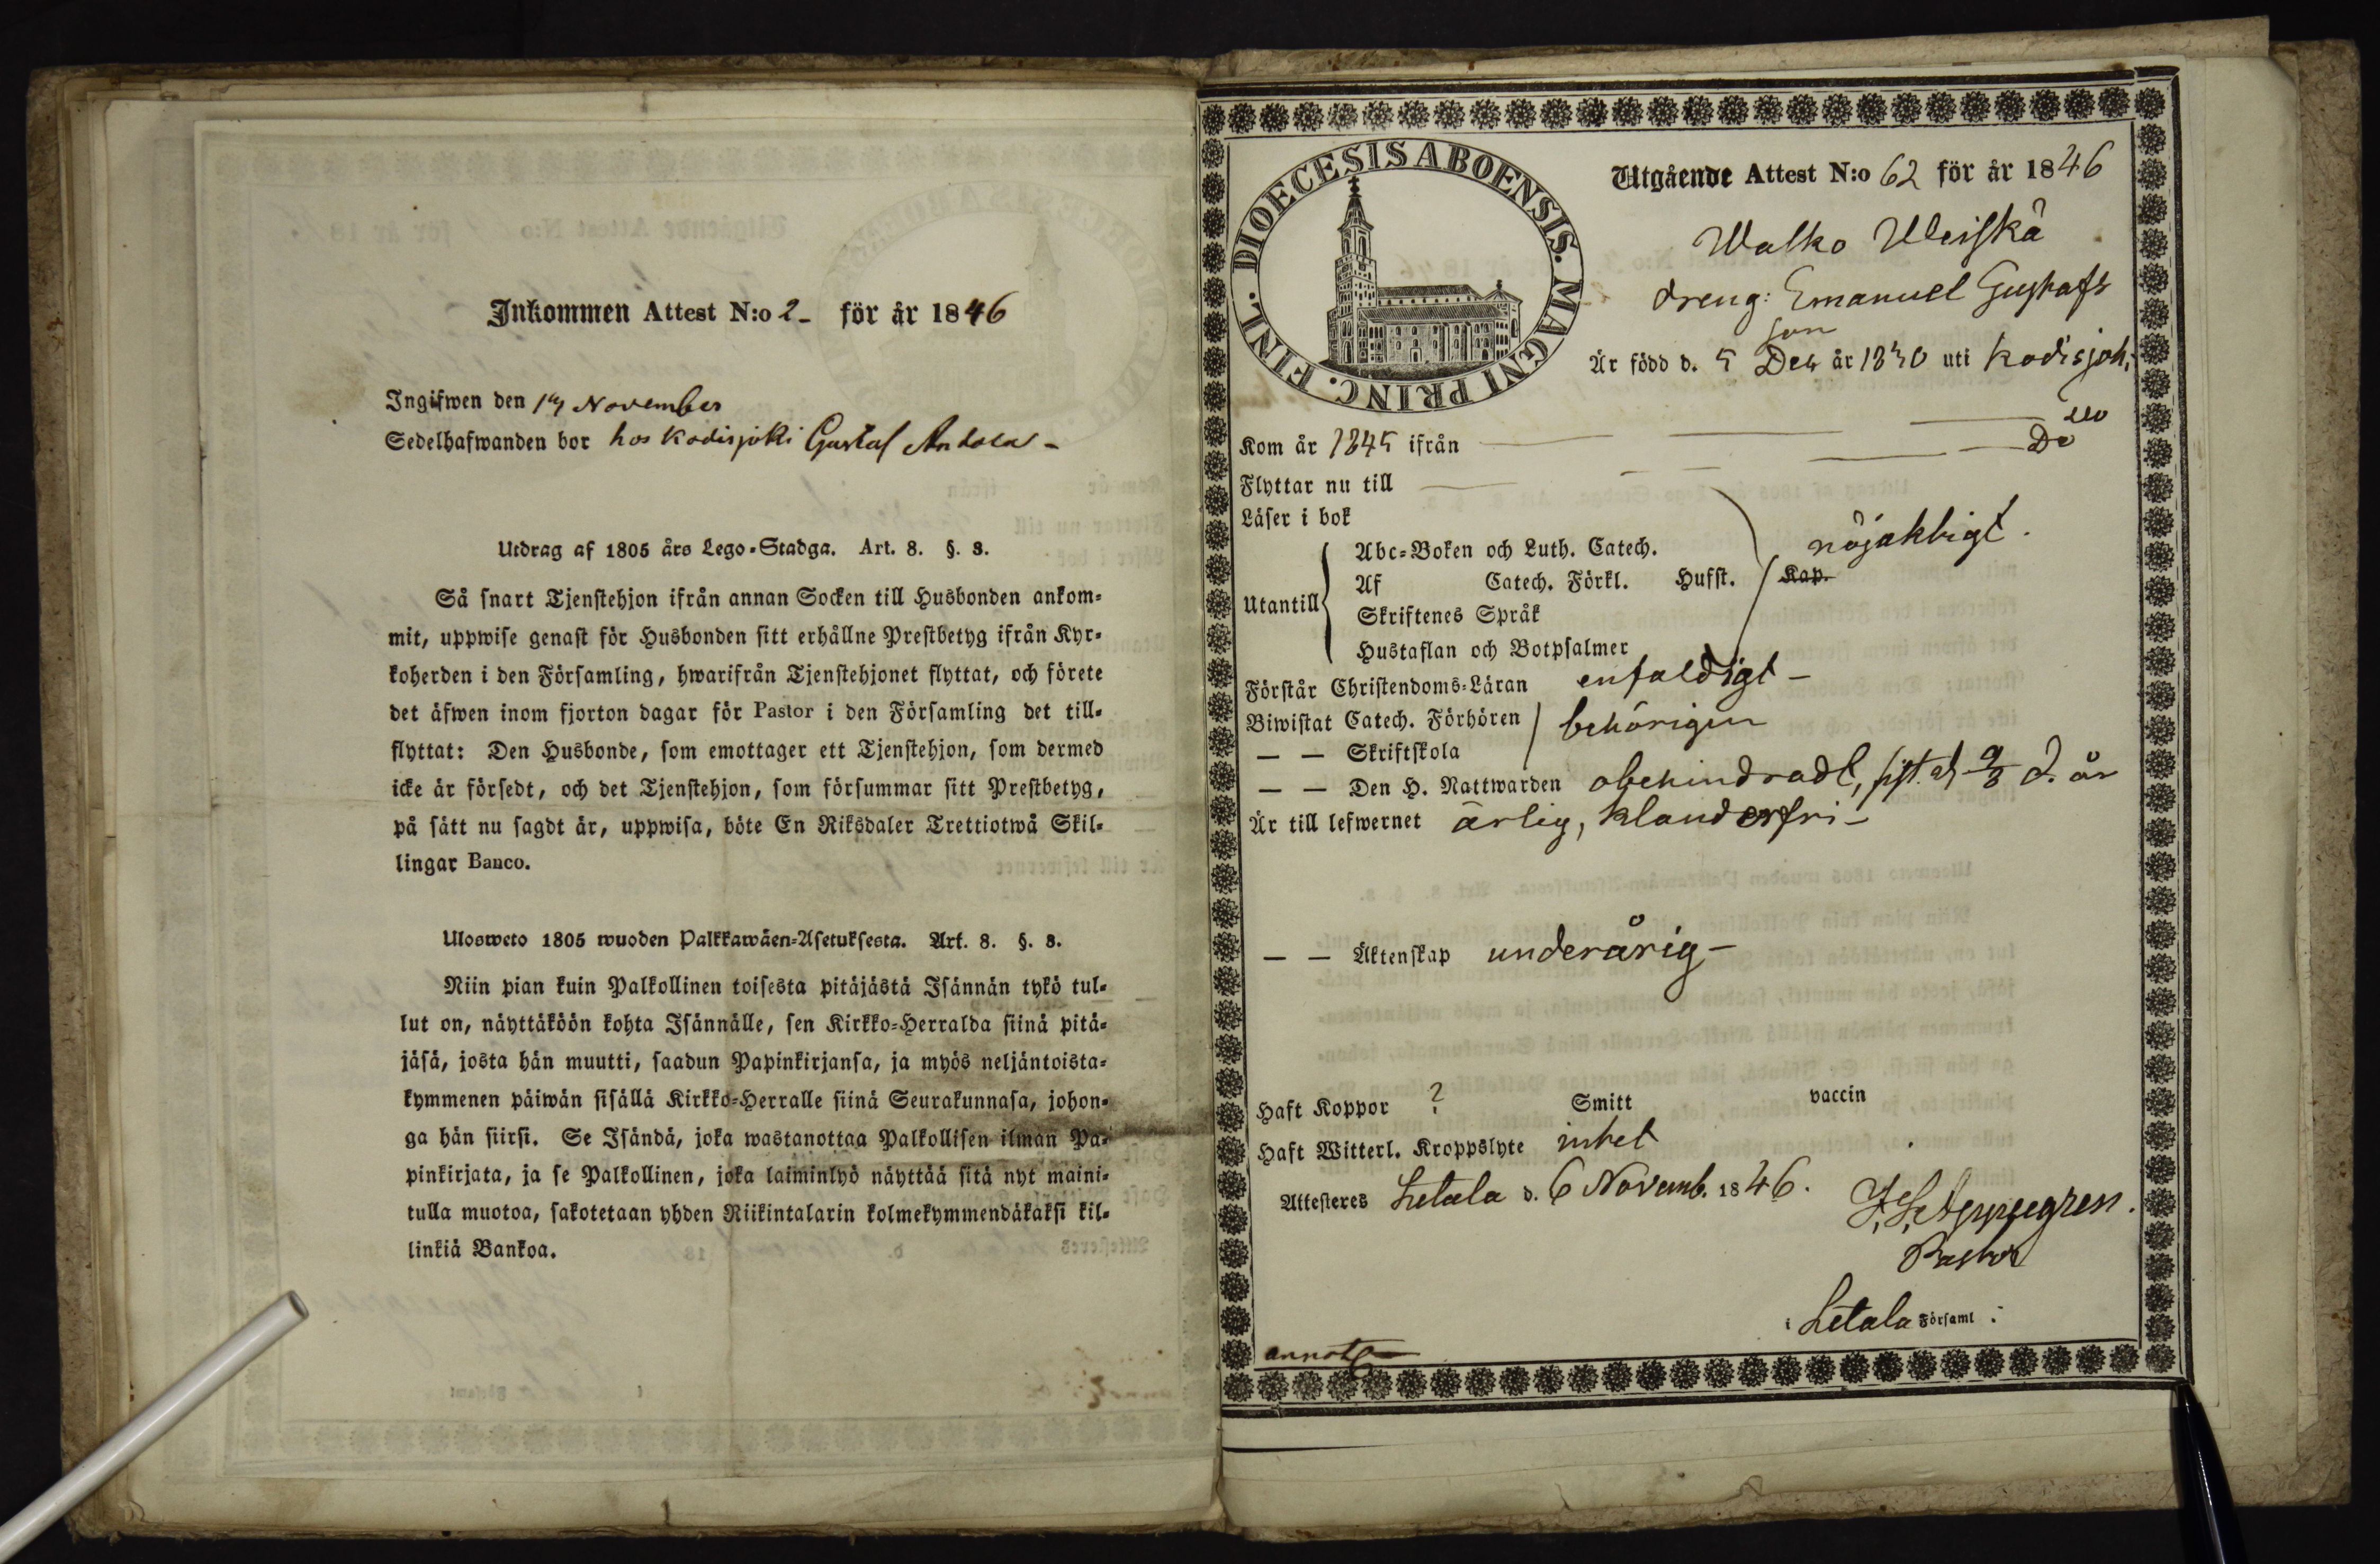 Inkommen Attest N:o 2 - för år 1846
Ingifwen den 14 November
Sedelhafwanden bor hos Kodisjoki Gustaf Andola -
Utdrag af 1805 års Lego-Stadga. Art. 8. §. 8.
Så snart Tjenstehjon ifrån annan Socken till Husbonden ankom-
mit, uppwise genast för Husbonden sitt erhållne Prestbetyg ifrån Kyr-
koherden i den Församling, hwarifrån Tjenstehjonet flyttat, och förete
det äfwen inom fjorton dagar för Pastor i den Församling det till-
flyttat: Den Husbonde, som emottager ett Tjenstehjon, som dermed
icke är försedt, och det Tjenstehjon, som försummar sitt Prestbetyg,
på sätt nu sagdt är, uppwisa, böte En Riksdaler Trettiotwå Skil-
lingar Banco.
Ulosweto 1805 wuoden Palkkawäen-Asetuksesta. Art. 8. §. 8.
Niin pian kuin Palkollinen toisesta pitäjästä Isännän tykö tul-
lut on, näyttäköön kohta Isännälle, sen Kirkko-Herralda siinä pitä-
jäsä, josta hän muutti, saadun Papinkirjansa, ja myös neljäntoista-
kymmenen päiwän sisällä Kirkko-Herralle siinä Seurakunnasa, johon-
ga hän siirsi. Se Isändä, joka wastanottaa Palkollisen ilman Pa-
pinkirjata, ja se Palkollinen, joka laiminlyö näyttää sitä nyt maini-
tulla muotoa, sakotetaan yhden Riikintalarin kolmekymmendäkaksi kil-
linkiä Bankoa.
DIOECESIS ABOENSIS. MAGNI PRINC. FINL.
Utgående Attest N:o 62 för år 1846
Walko Weiskå
dreng: Emanuel Gustafs
son
Är född d. 5 Dec år 1830 uti Kodisjoh,
Kom år 1845 ifrån Do
Flyttar nu till
Läser i bok
Utantill
Abc-Boken och Luth. Catech. nöjaktigt.
Af Catech. Förkl. Husst. Kap.
Skriftenes Språk
Hustaflan och Botpsalmer
Förstår Christendoms-Läran enfaldigt -
Biwistat Catech. Förhören behörigen
— — Skriftskola
— — Den H. Nattwarden obehindradt, sist d 9/8 d. år
Är till lefwernet ärlig, klanderfri -
— — Äktenskap underårig -
Haft Koppor ? Smitt vaccin
Haft Witterl. Kroppslyte intet
Attesteres Letala d. 6 Novemb. 1846.
Pastor
i Letala Församl:
annot